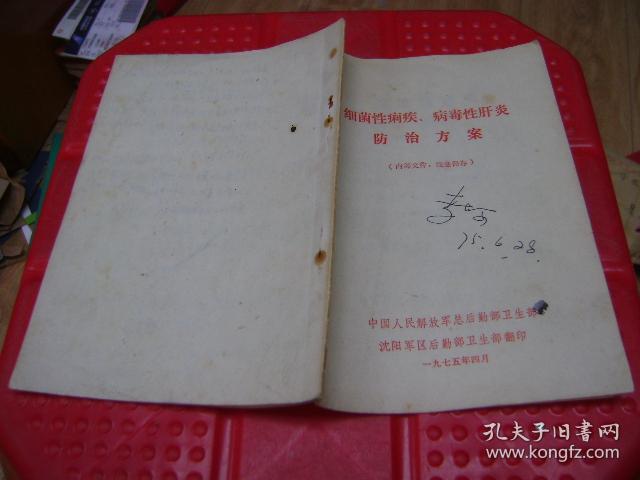 细菌性痢疾、病毒性肝炎
防治方案
(内部文件,注意保存)
75.6.28.
中国人民解放军总后勤部卫生部
沈阳军区后勤部卫生部翻印
一九七五年四月
孔夫子旧书网
www.kongfz.com